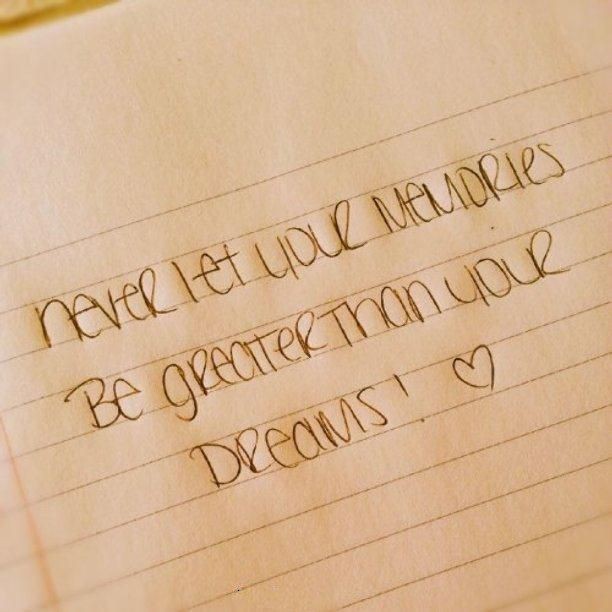 never let your memories
Be greater than your
Dreams! ♡